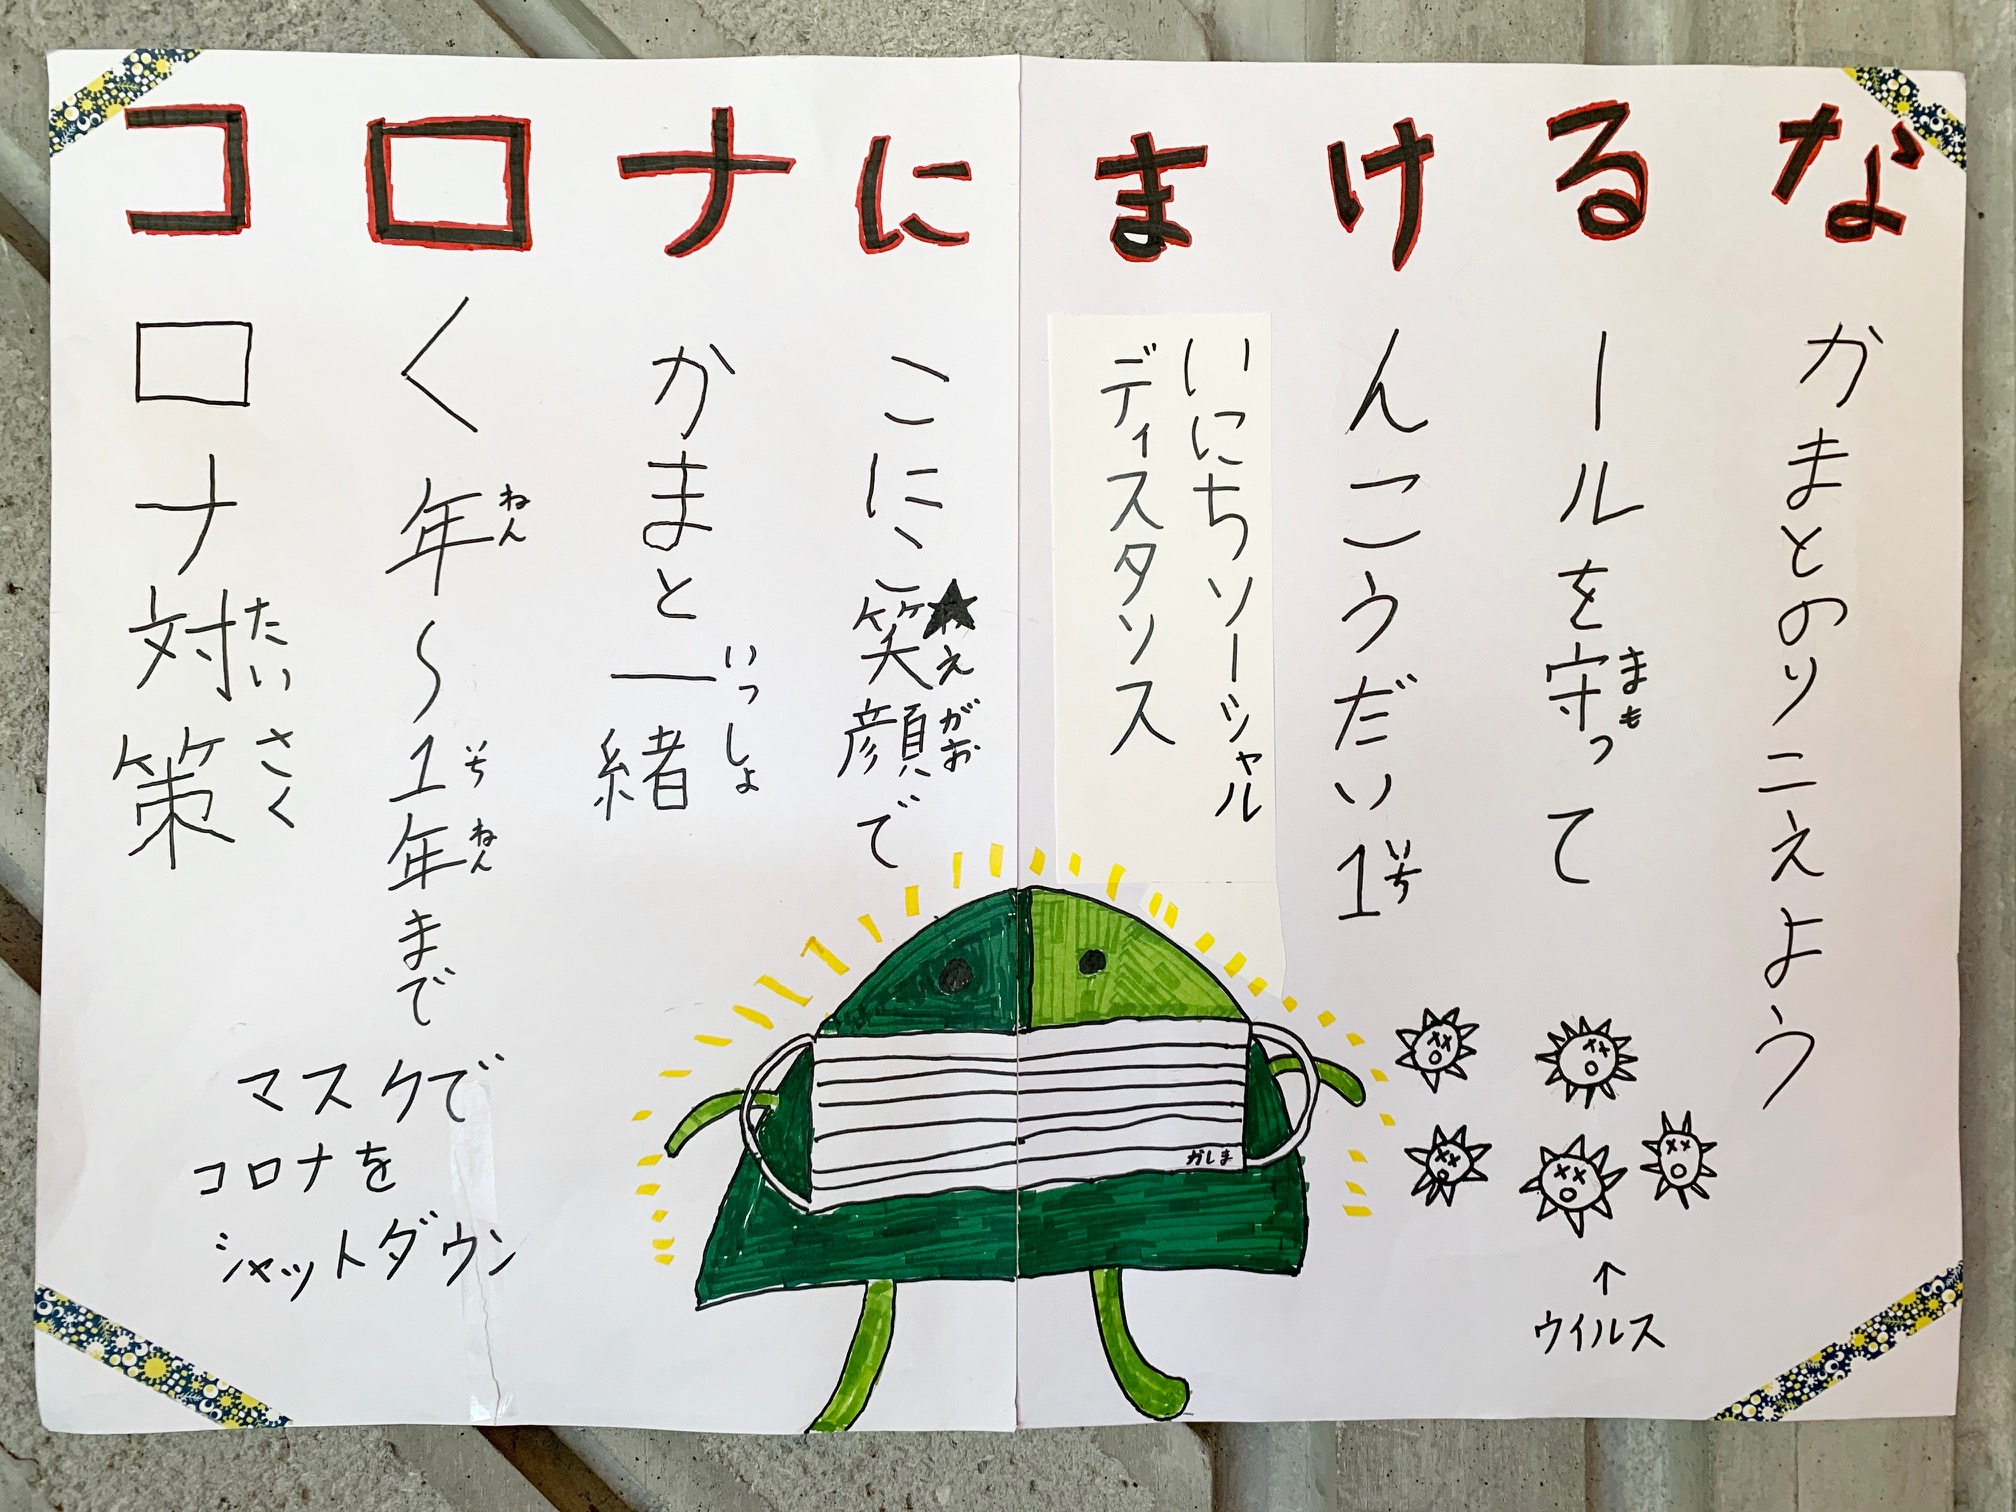 コロナにまけるな
ロナ対策
たいさく
く年〜1年まで
ねん いち ねん
かまと一緒
いっしょ
こにこ笑顔で
えがお
いにちソーシャル
ディスタンス
んこうだい1
いち
ールを守って
まも
かまとのりこえよう
マスクで
コロナを
シャットダウン
かしま
↑
ウイルス